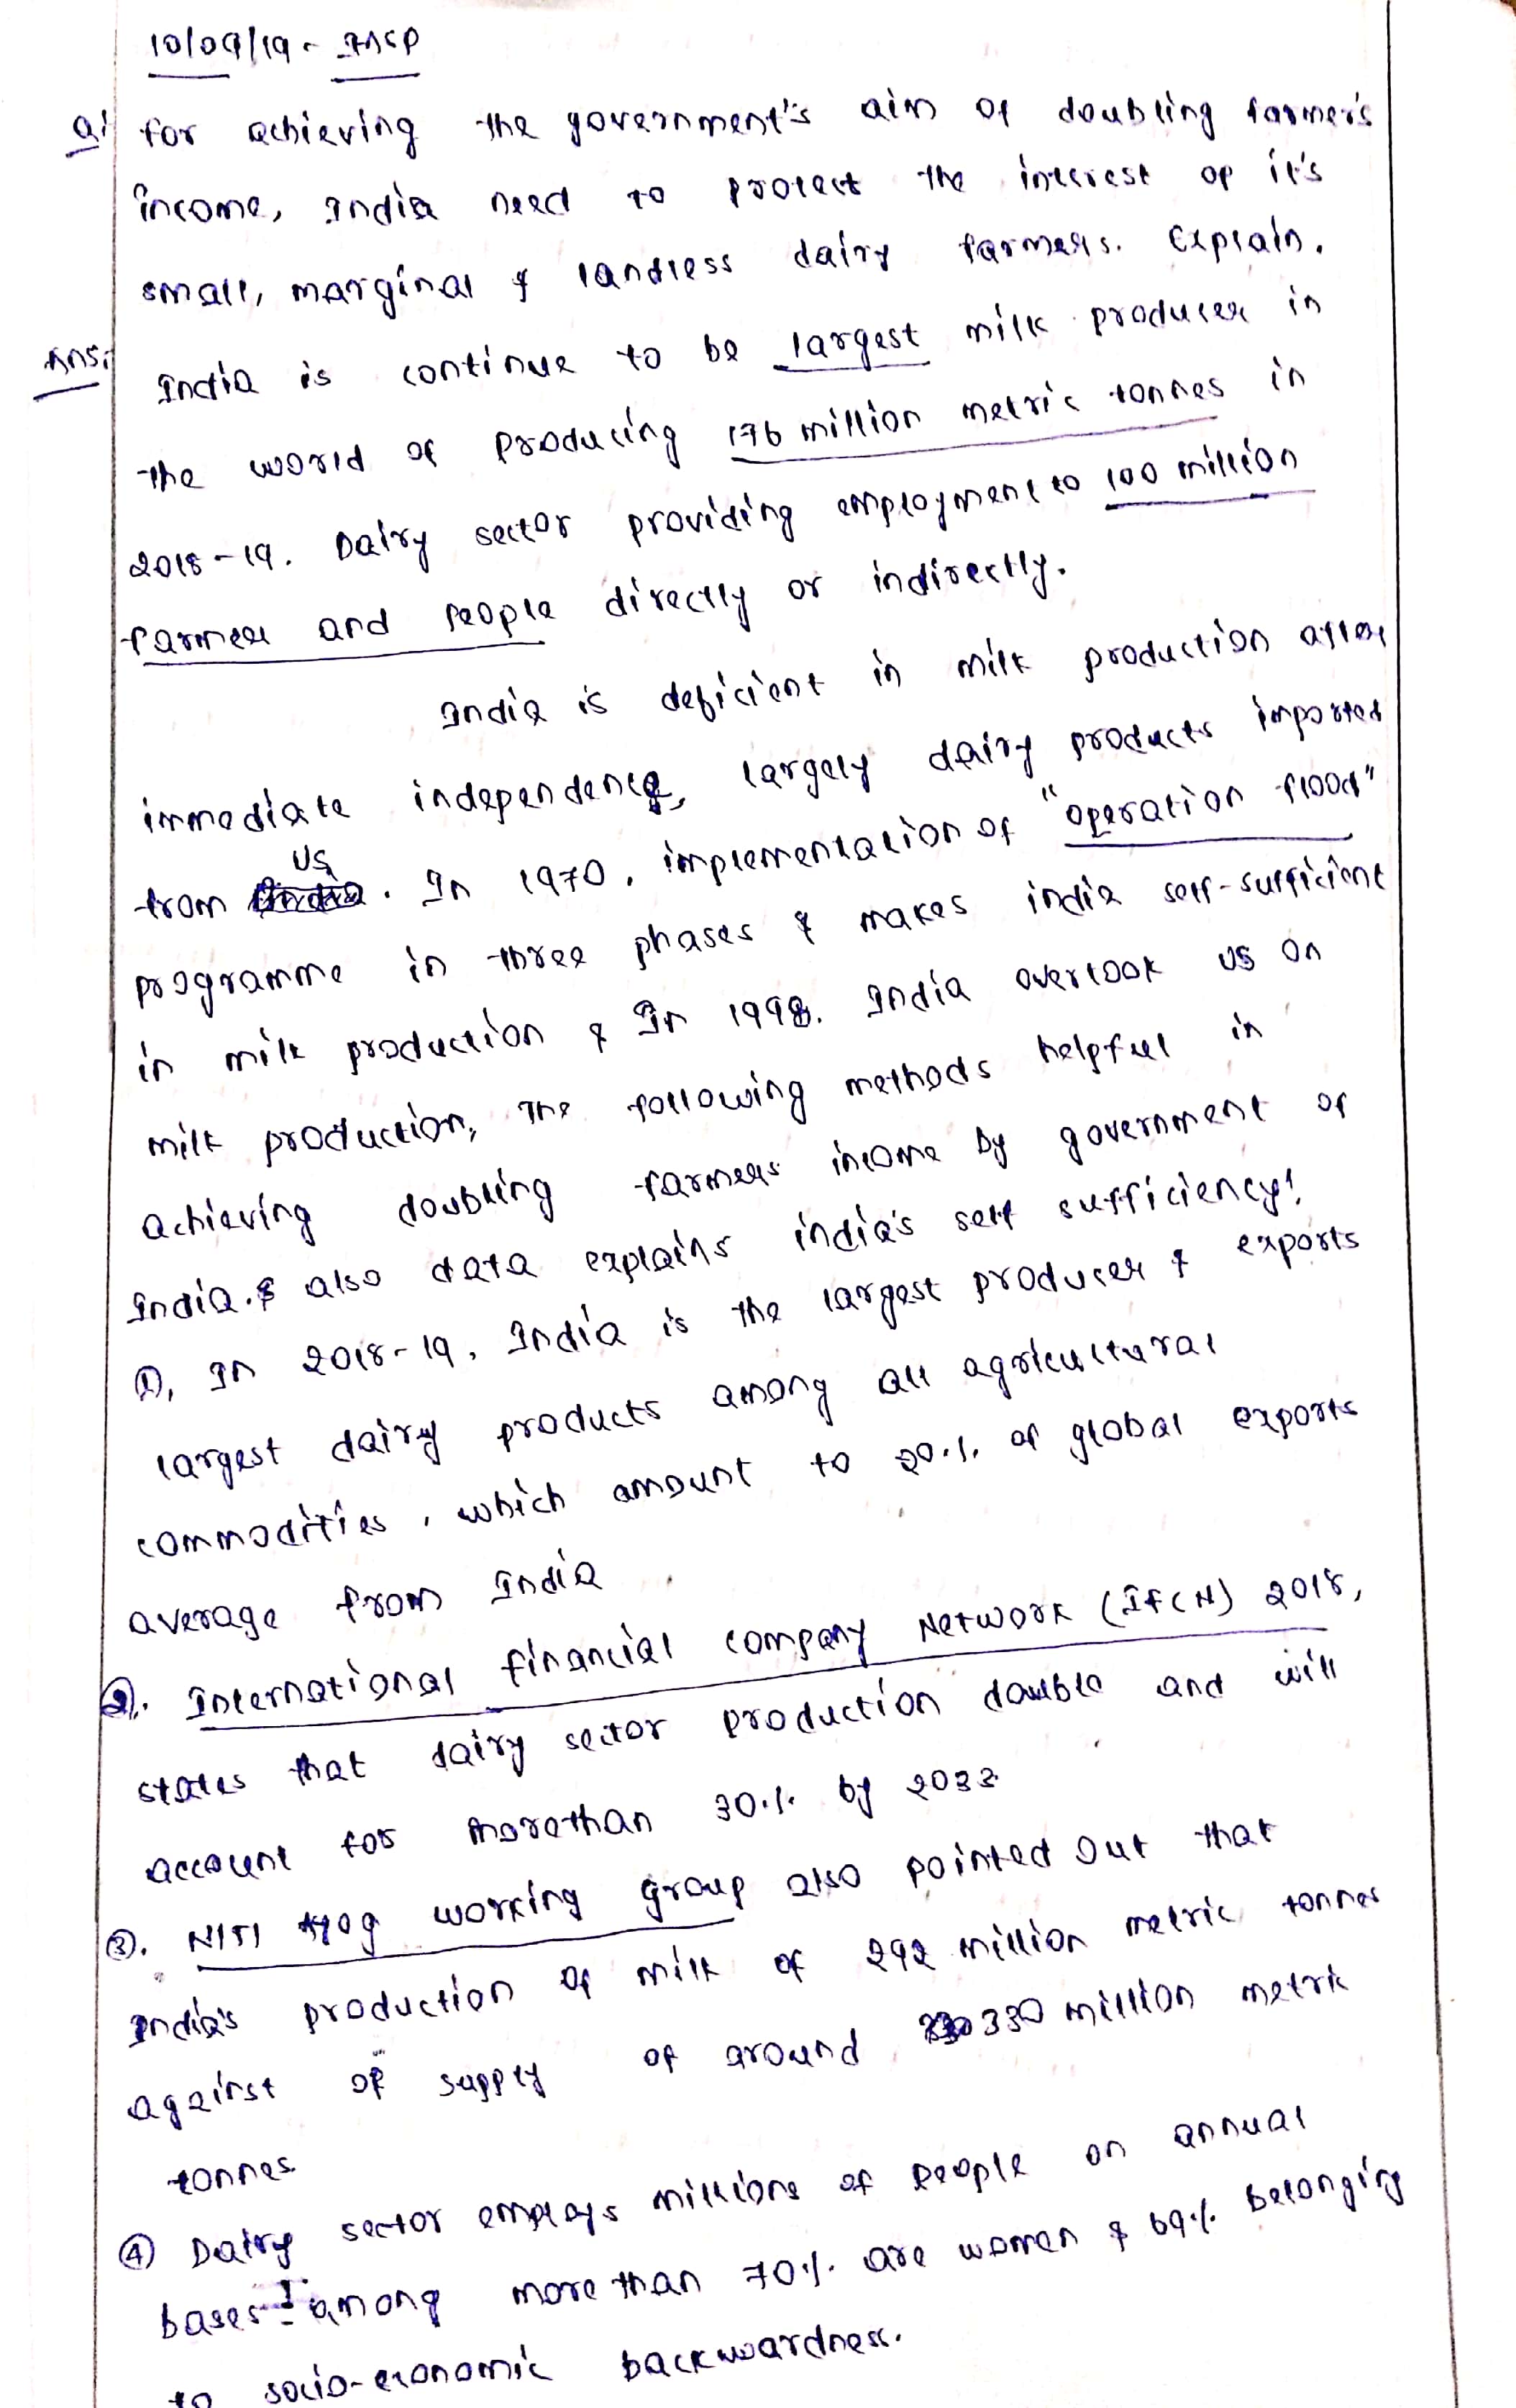 10/09/19 - INSP
Q1 for achieving the government's aim of doubling farmer's
income, India need to protect the interest of it's
small, marginal & landless dairy farmers. Explain.
Ans: India is continue to be largest milk producer in
the world of producing 176 million metric tonnes in
2018-19. Dairy sector providing employment to 100 million
farmer and people directly or indirectly.
India is deficient in milk production after
immediate independence, largely dairy products imported
from US. In 1970, implementation of "operation flood"
programme in three phases & makes india self-sufficient
in milk production & In 1998. India overtook US on
milk production, The following methods helpful in
achieving doubling farmers income by government of
India. & also data explains india's self sufficiency!
①, In 2018-19, India is the largest producer & exports
largest dairy products among all agricultural
commodities, which amount to 20.1. of global exports
average from India
②. International financial company Network (IFCN) 2018,
states that dairy sector production double and will
account for morethan 30.1. by 2033
③. NITI Ayog working group also pointed out that
India's production of milk of 292 million metric tonnes
against of supply of around 330 million metric
tonnes
④ Dairy sector employs millions of people on annual
bases among more than 70.1. are women & 69.1. belonging
to socio-economic backwardness.